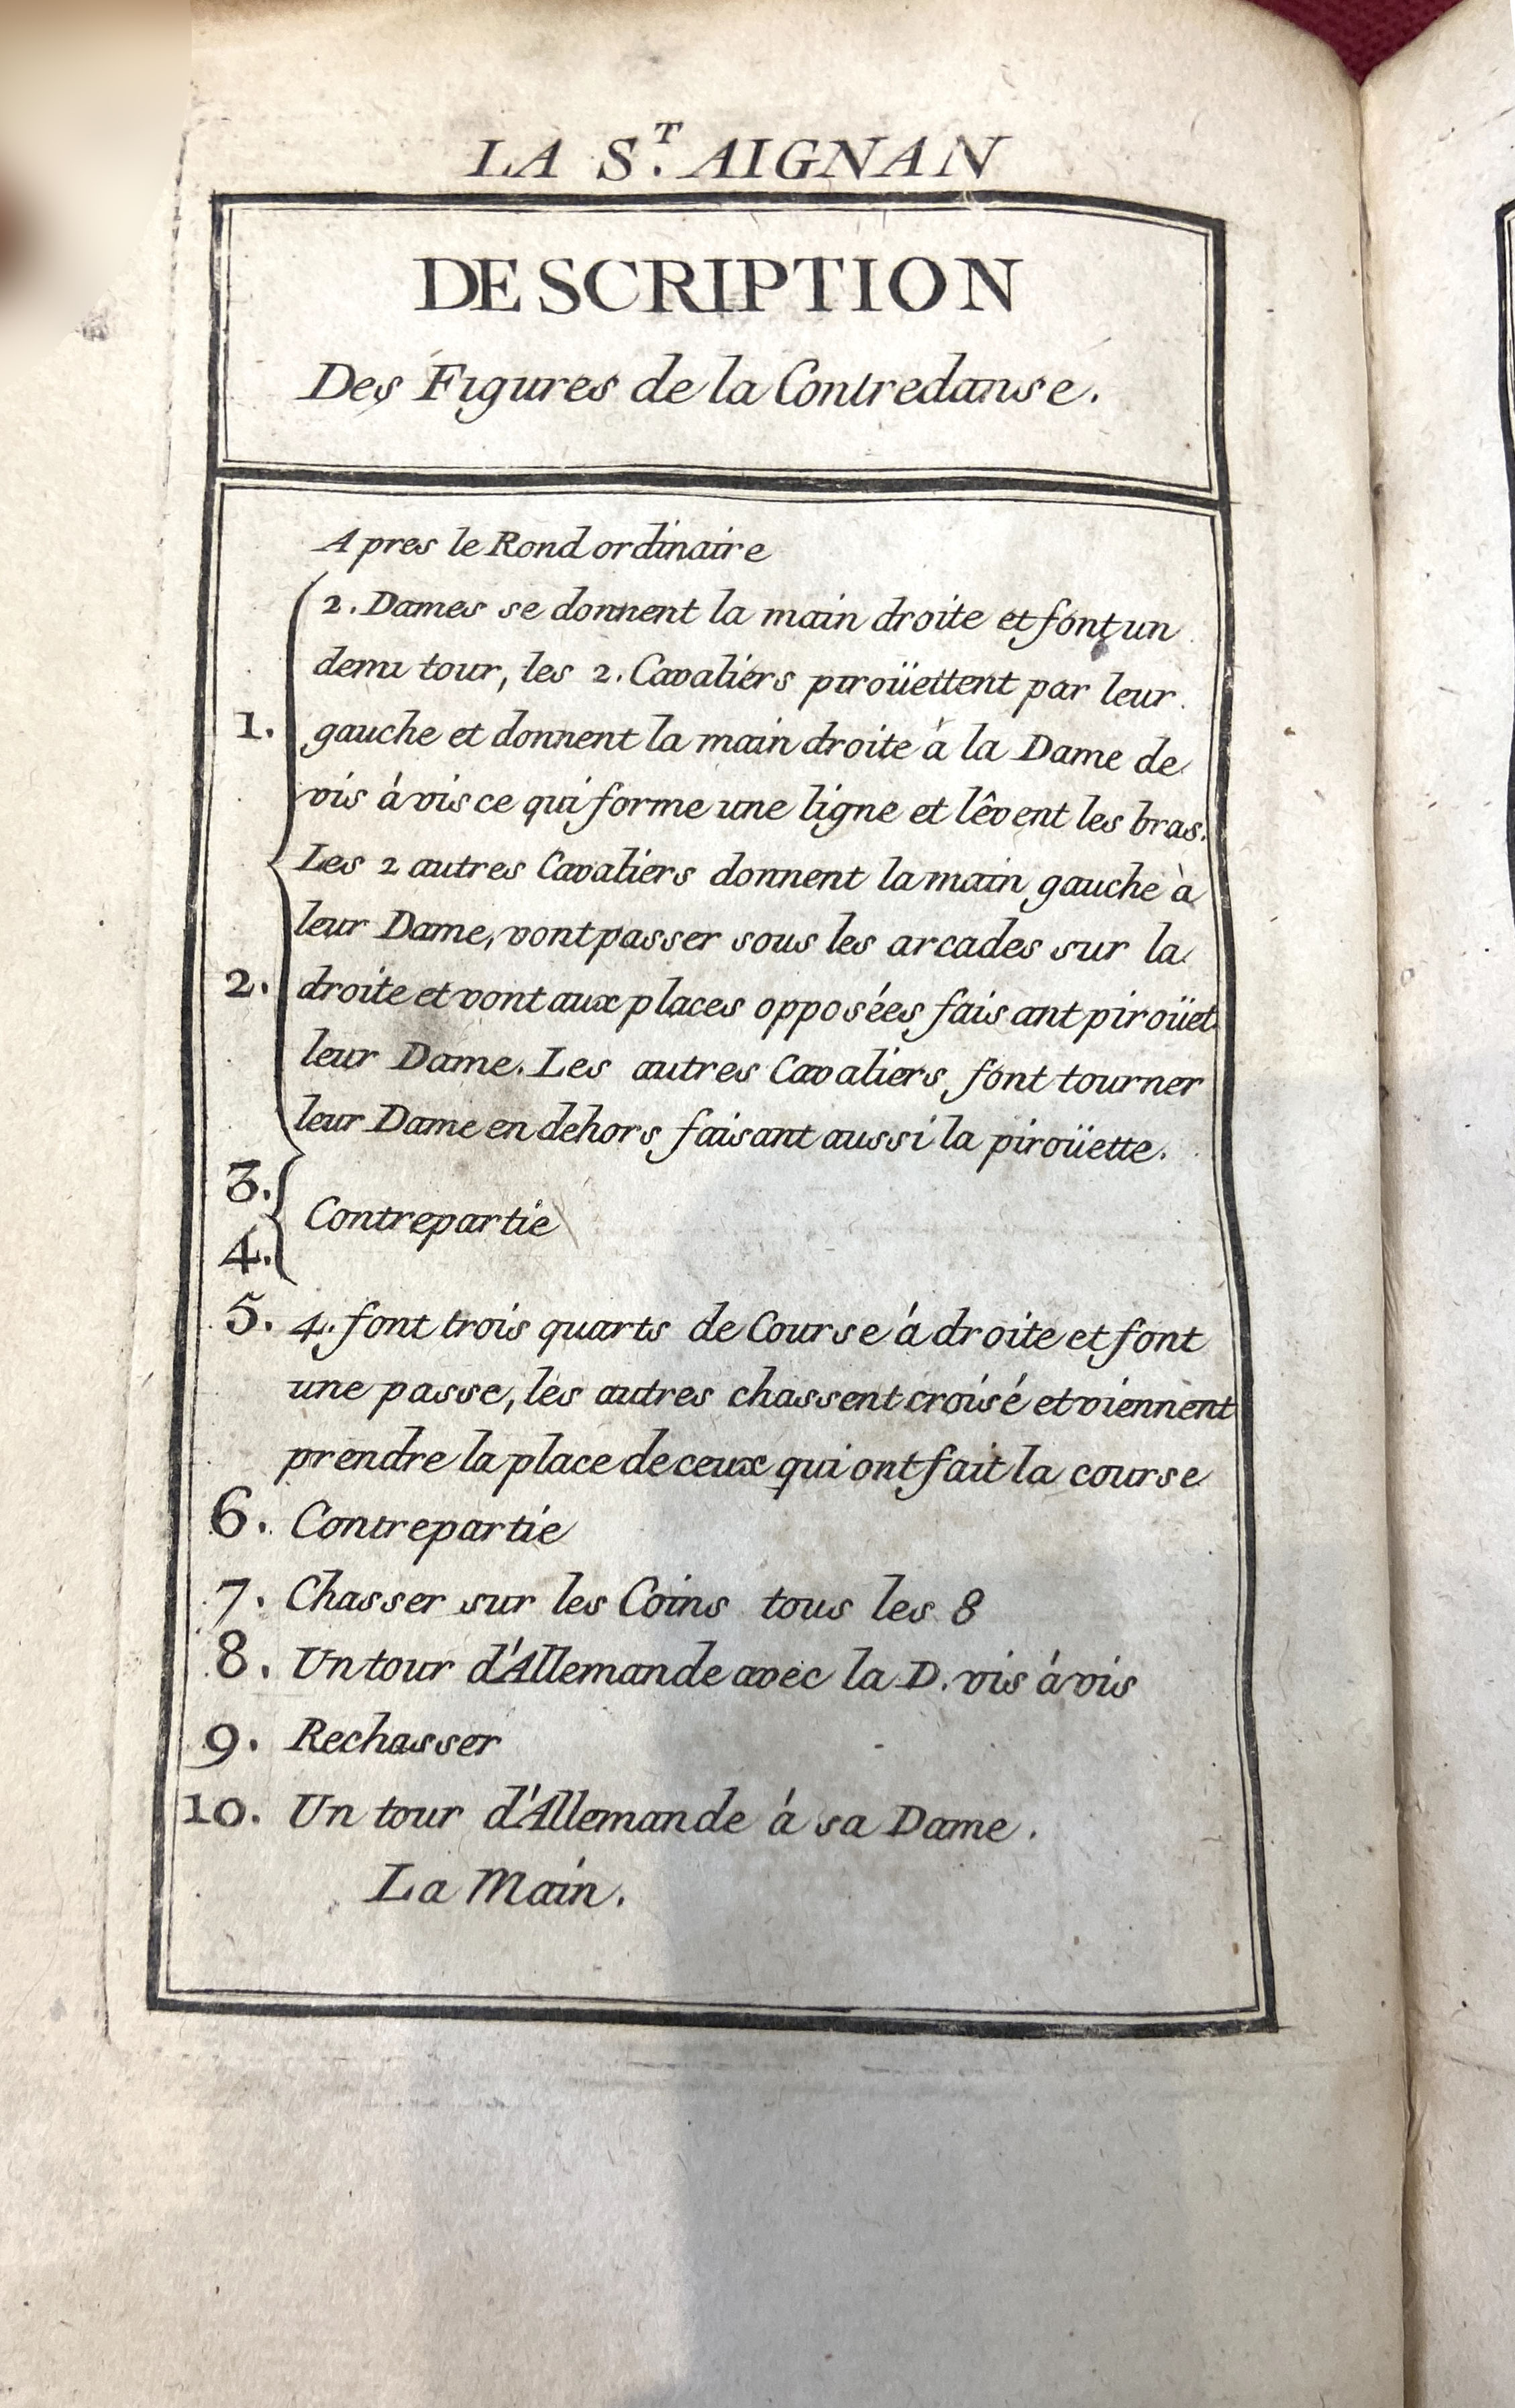 LA S.T AIGNAN
DESCRIPTION
Des Figures de la Contredanse.
Apres le Rond ordinaire
2. Dames se donnent la main droite et font un
demi tour, les 2. Cavaliers piroüettent par leur
1. gauche et donnent la main droite à la Dame de
vis à vis ce qui forme une ligne et lêvent les bras.
Les 2 autres Cavaliers donnent la main gauche à
leur Dame, vont passer sous les arcades sur la
2. droite et vont aux places opposées faisant piroüet
leur Dame. Les autres Cavaliers font tourner
leur Dame en dehors faisant aussi la piroüette.
3.
Contrepartie
4.
5. 4. font trois quarts de Course à droite et font
une passe, les autres chassent croisé et viennent
prendre la place de ceux qui ont fait la course
6. Contrepartie
7. Chasser sur les Coins tous les 8
8. Un tour d'Allemande avec la D. vis à vis
9. Rechasser
10. Un tour d'Allemande à sa Dame.
La Main.